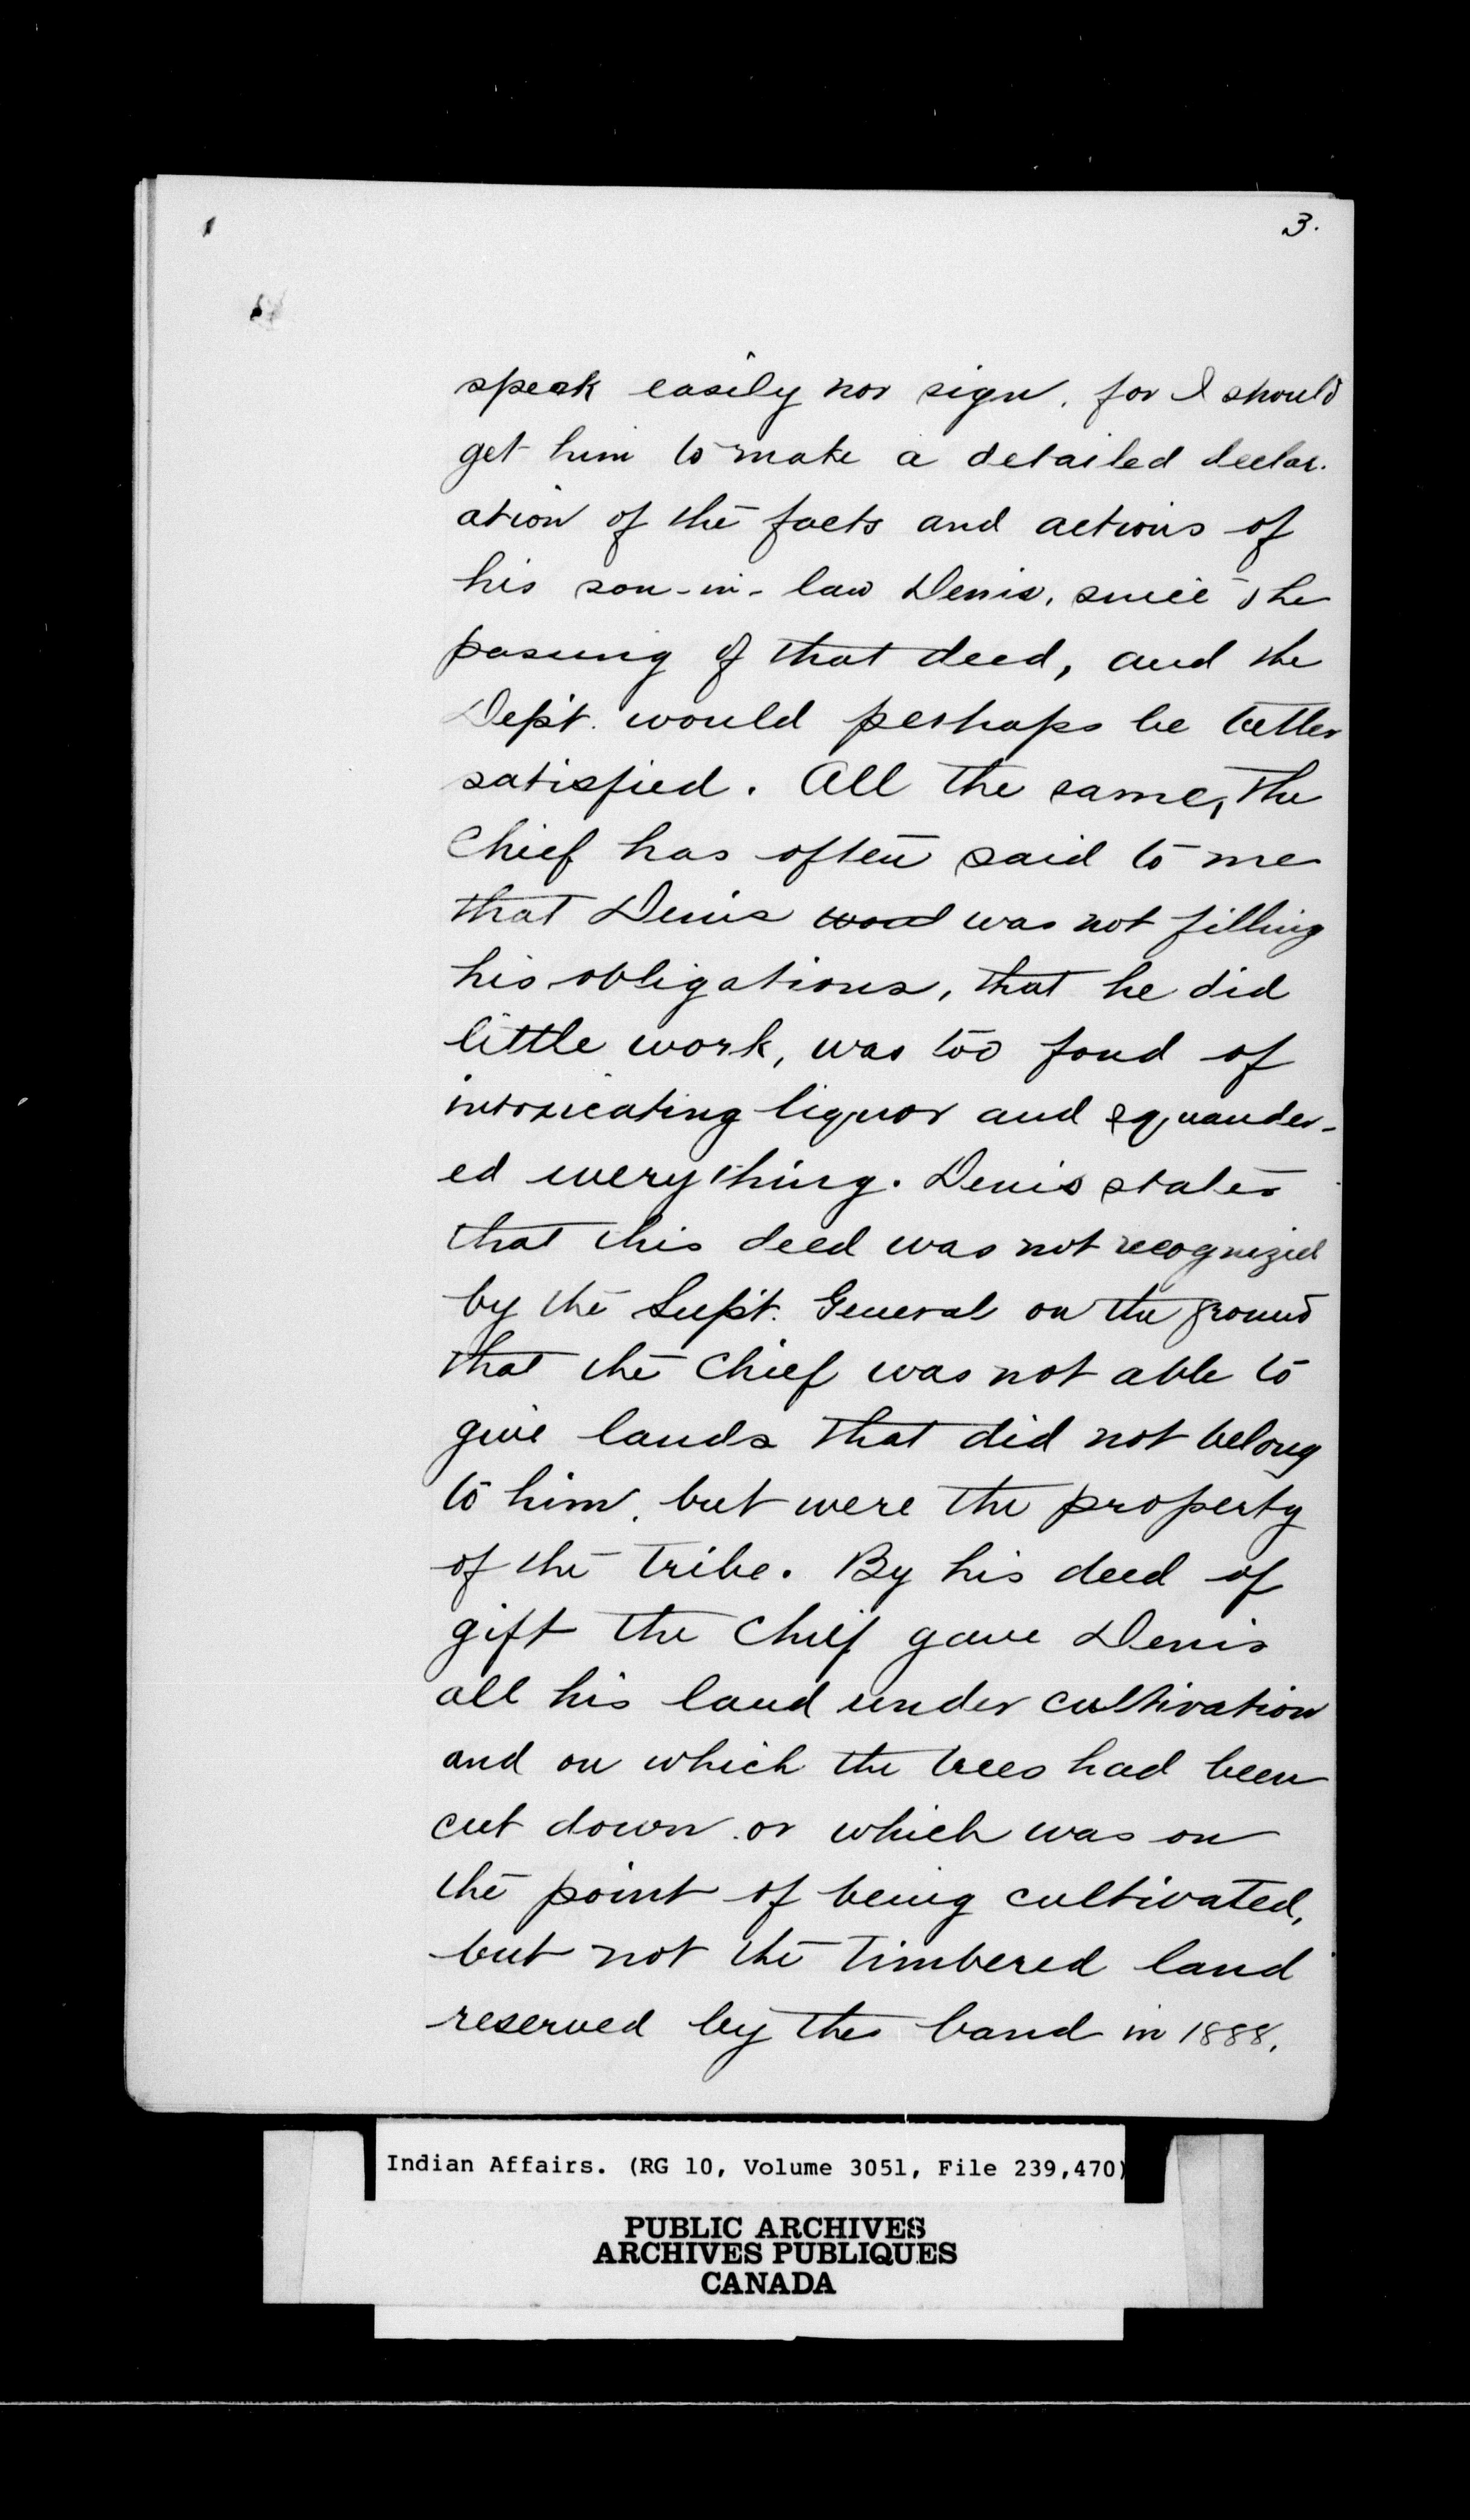 3.
speak easily nor sign, for I should
get him to make a detailed declar-
ation of the facts and actions of
his son-in-law Denis, since the
passing of that deed, and the
Dep't. would perhaps be better
satisfied. All the same, the
Chief has often said to me
that Denis was not filling
his obligations, that he did
little work, was too fond of
intoxicating liquor and squander-
ed everything. Denis states
that this deed was not recognized
by the Sup't. General on the ground
that the Chief was not able to
give lands that did not belong
to him, but were the property
of the tribe. By his deed of
gift the Chief gave Denis
all his land under cultivation
and on which the trees had been
cut down or which was on
the point of being cultivated,
but not the timbered land
reserved by the band in 1888.
Indian Affairs. (RG 10, Volume 3051, File 239,470)
PUBLIC ARCHIVES
ARCHIVES PUBLIQUES
CANADA